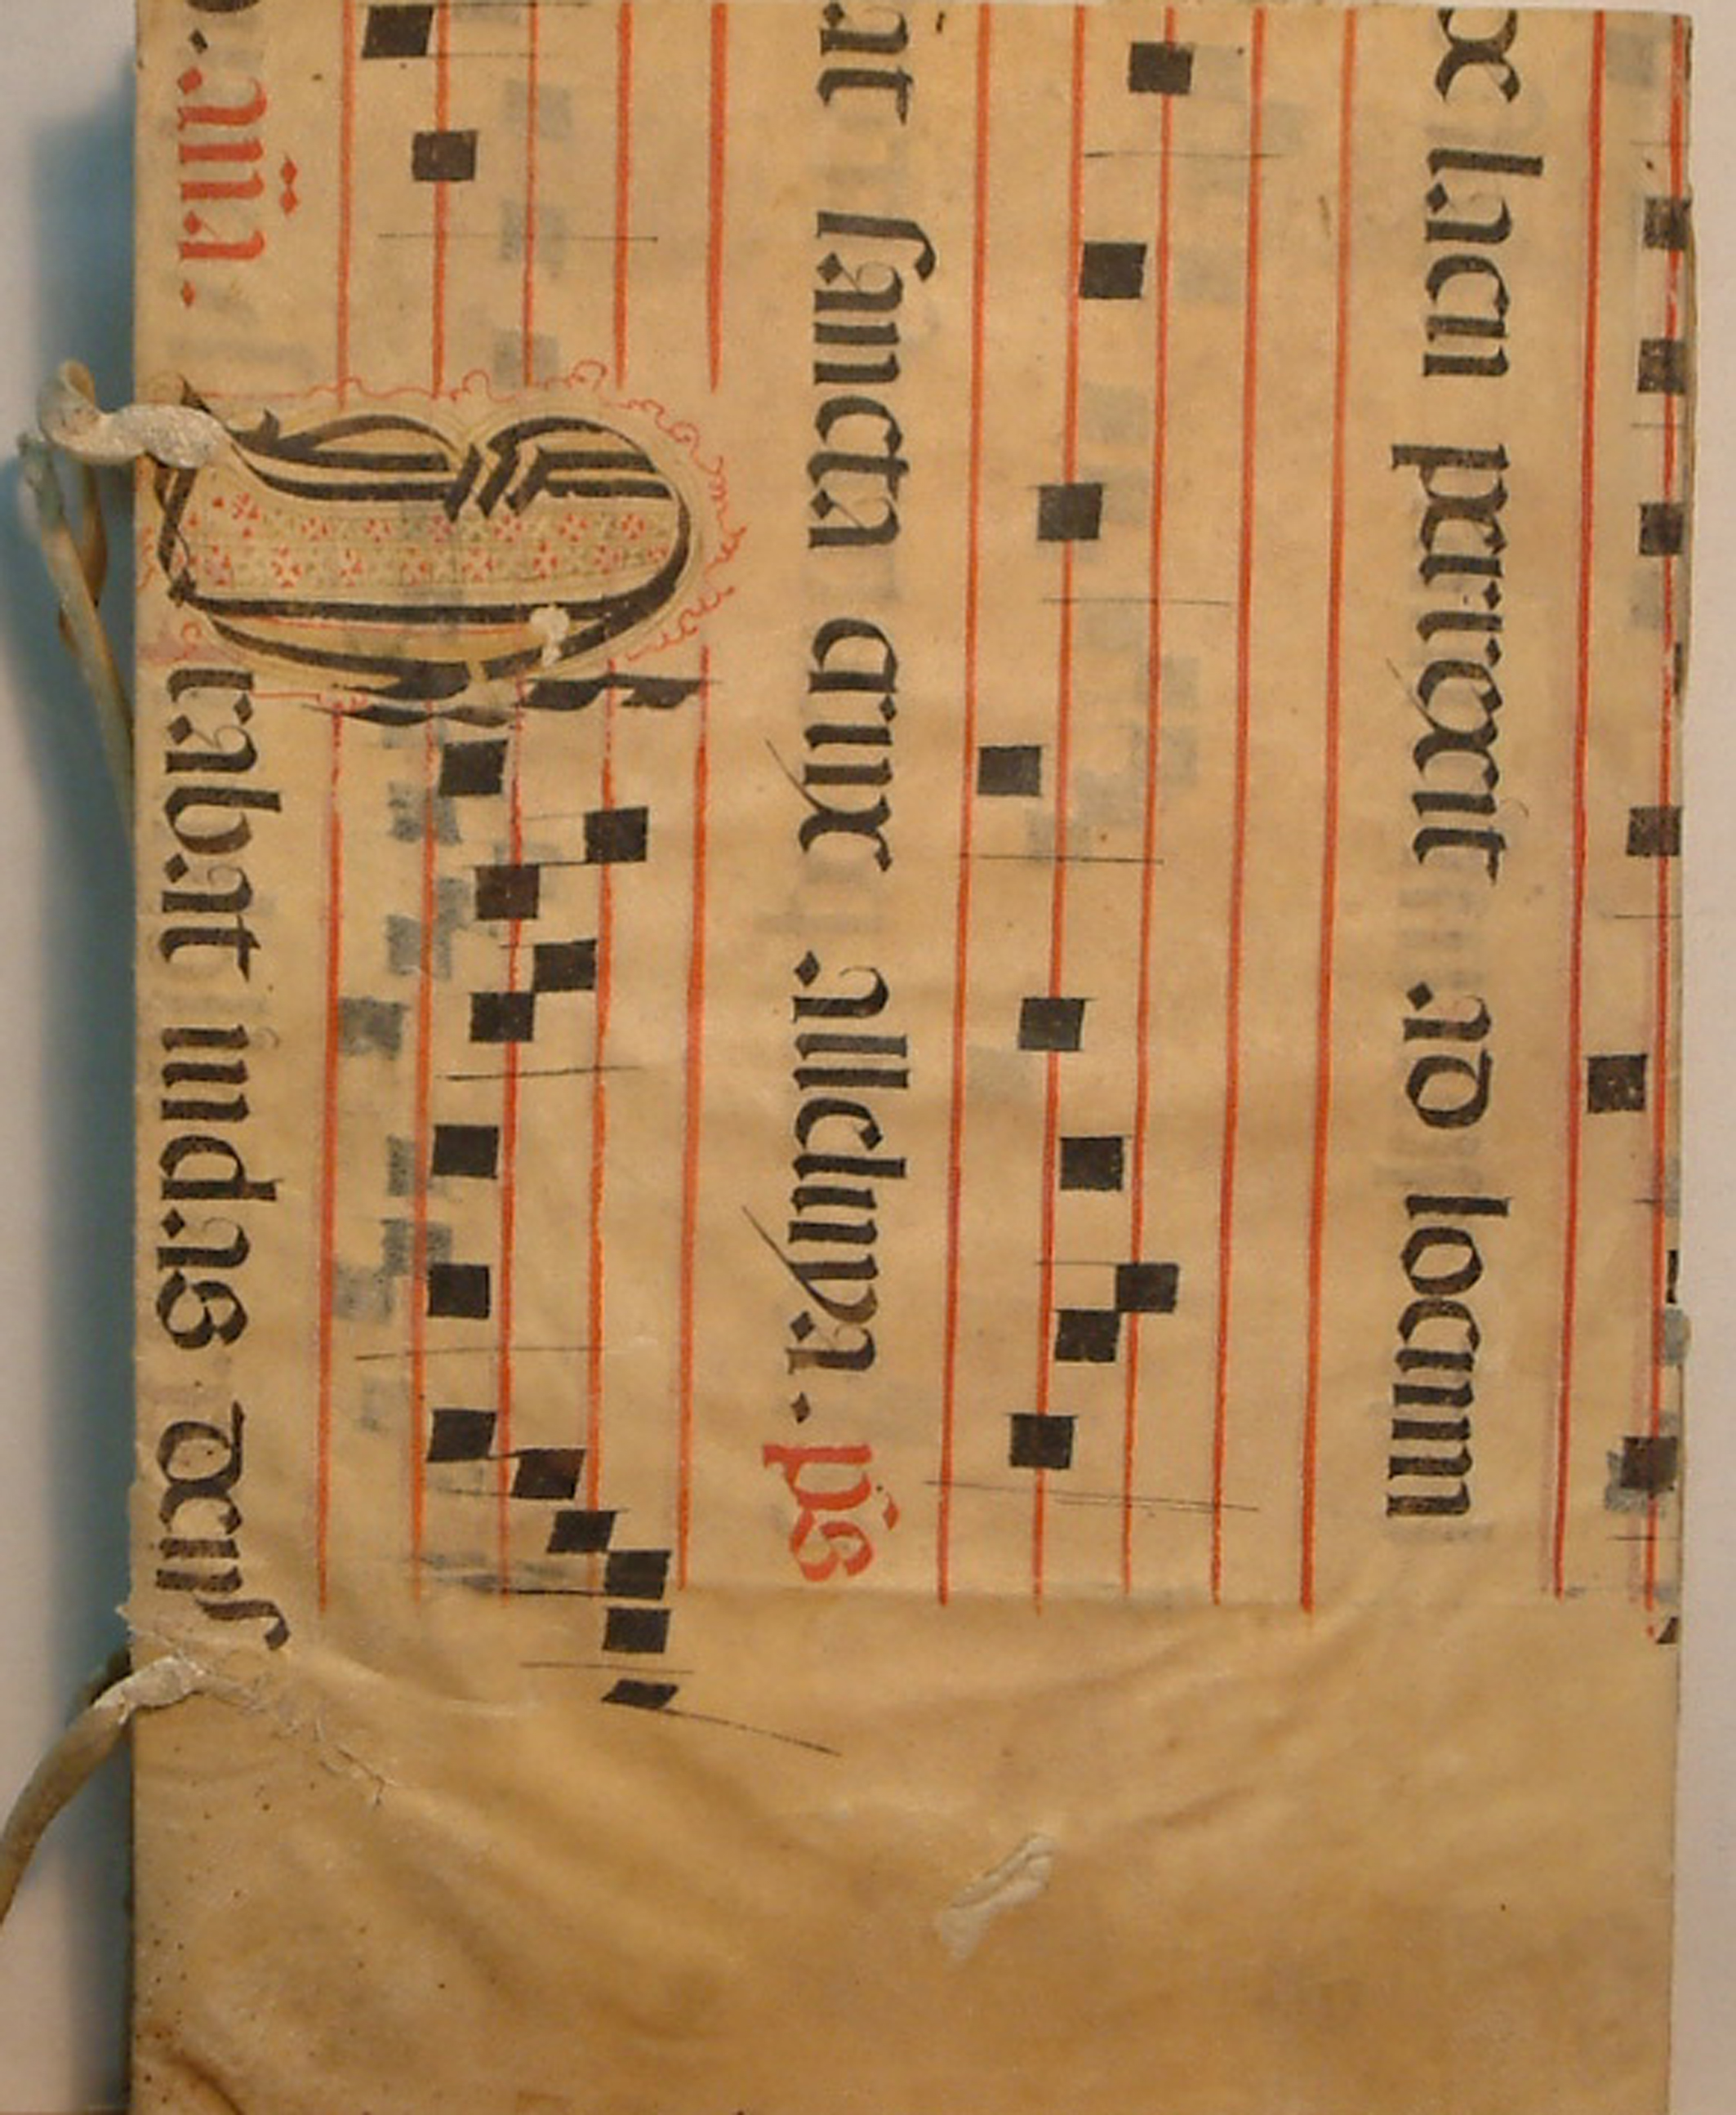 de lacu perrexit ad locum
at sancta crux alleluya. ps
aña. Orabat iudas deus